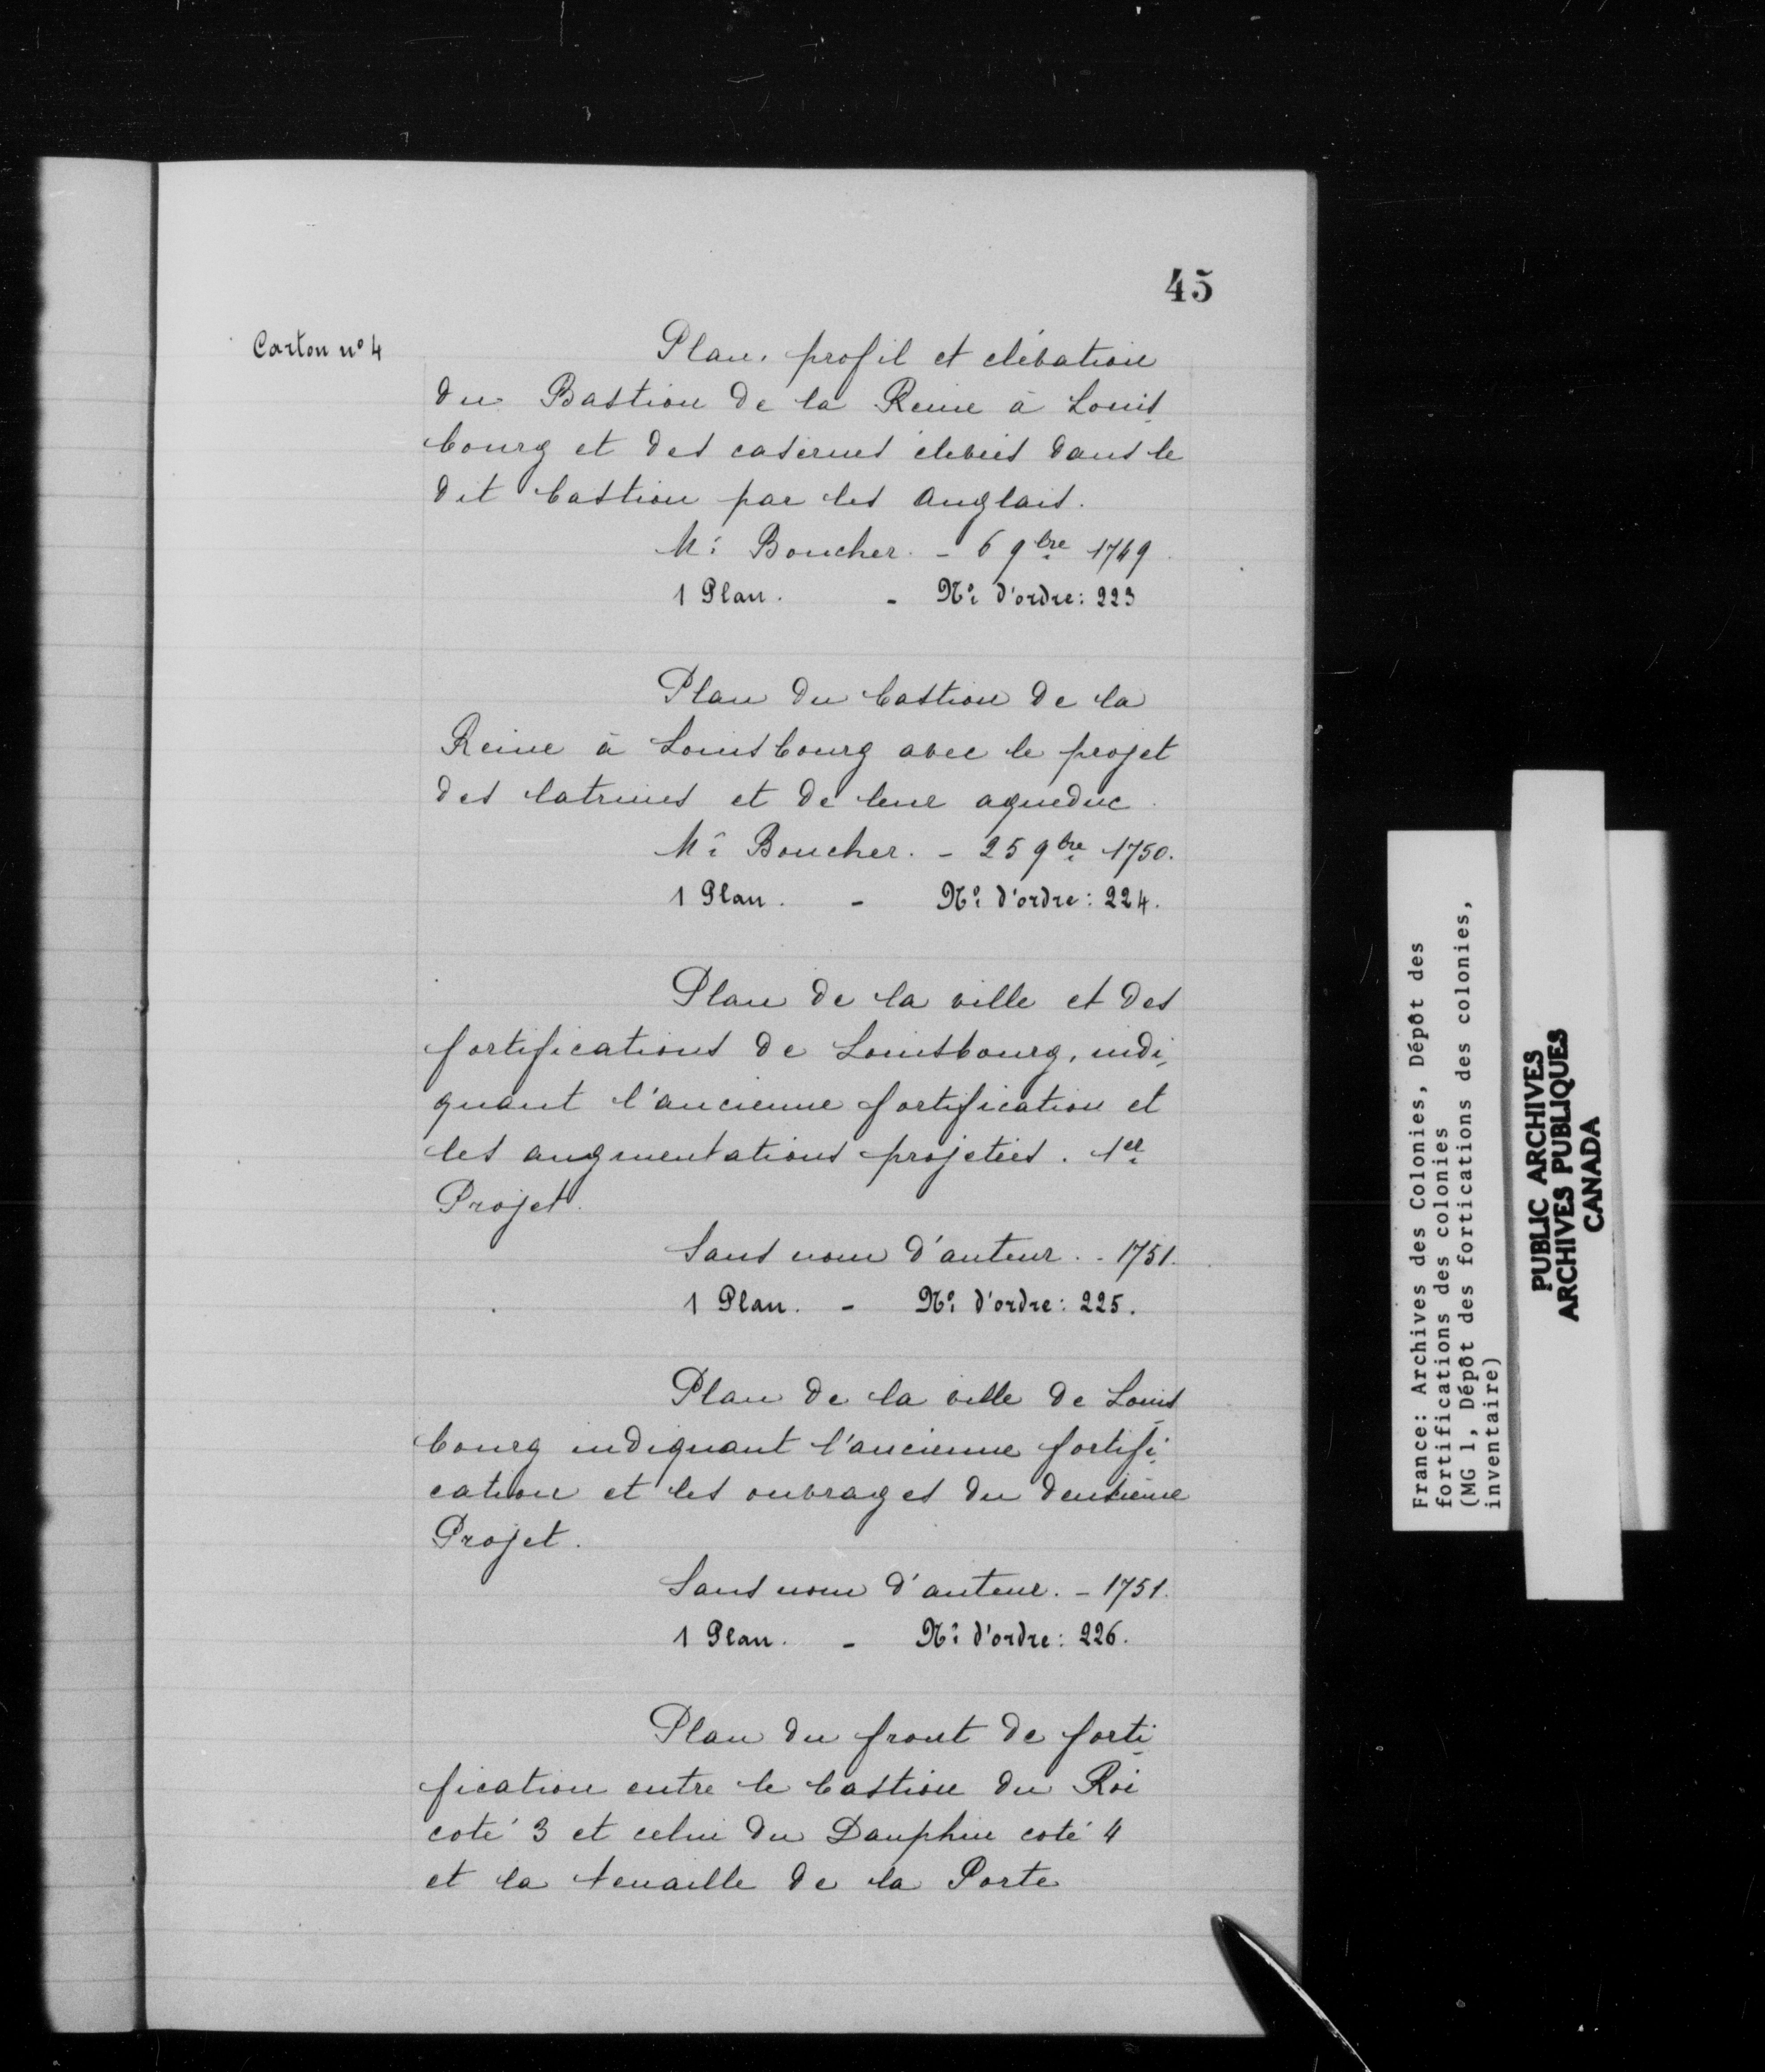 45
Carton nº 4
Plan, profil et élévation
du Bastion de la Reine à Louis-
bourg et des casernes élevées dans le
dit bastion par les Anglais.
Mr Boucher. - 6 9bre 1749.
1 Plan. - Nº d'ordre: 223
Plan du bastion de la
Reine à Louisbourg avec le projet
des latrines et de leur aqueduc.
Mr Boucher. - 25 9bre 1750.
1 Plan. - Nº d'ordre: 224.
Plan de la ville et des
fortifications de Louisbourg, indi-
quant l'ancienne fortification et
les augmentations projetées. 1er
Projet.
Sans nom d'auteur. - 1751.
1 Plan. - Nº d'ordre: 225.
Plan de la ville de Louis-
bourg indiquant l'ancienne fortifi-
cation et les ouvrages du deuxième
Projet.
Sans nom d'auteur. - 1751.
1 Plan. - Nº d'ordre: 226.
Plan du front de forti-
fication entre le bastion du Roi
coté 3 et celui du Dauphin coté 4
et la tenaille de la Porte
France: Archives des Colonies, Dépôt des
fortifications des colonies
(MG 1, Dépôt des fortications des colonies,
inventaire)
PUBLIC ARCHIVES
ARCHIVES PUBLIQUES
CANADA